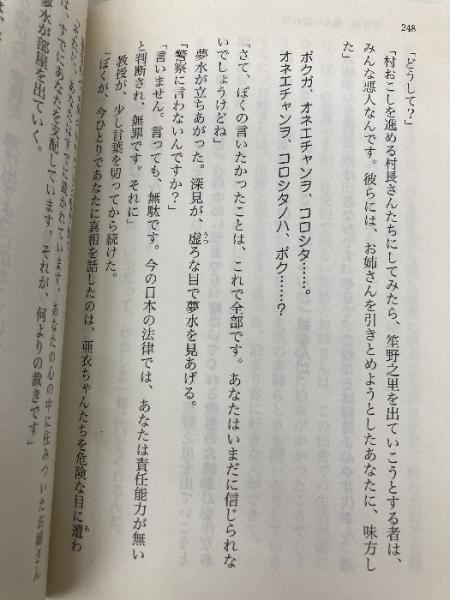 248
「どうして？」
「村おこしを進める村長さんたちにしてみたら、笙野之里を出ていこうとする者は、
みんな悪人なんです。彼らには、お姉さんを引きとめようとしたあなたに、味方し
た」
ボクガ、オネエチャンヲ、コロシタ……。
オネエチャンヲ、コロシタノハ、ボク……？
「さて、ぼくの言いたかったことは、これで全部です。あなたはいまだに信じられな
いでしょうけどね」
夢水が立ちあがった。深見が、虚ろな目で夢水を見あげる。
「警察に言わないんですか？」
「言いません。言っても、無駄です。今の日本の法律では、あなたは責任能力が無い
と判断され、無罪です。それに」
教授が、少し言葉を切ってから続けた。
「ぼくが、今ひとりであなたに真相を話したのは、亜衣ちゃんたちを危険な目に遭わ
あなたはすでに裁かれています。あなたの心の中に住みついたお姉さん
は、すでにあなたを支配しています。それが、何よりの裁きです」
夢水が部屋を出ていく。